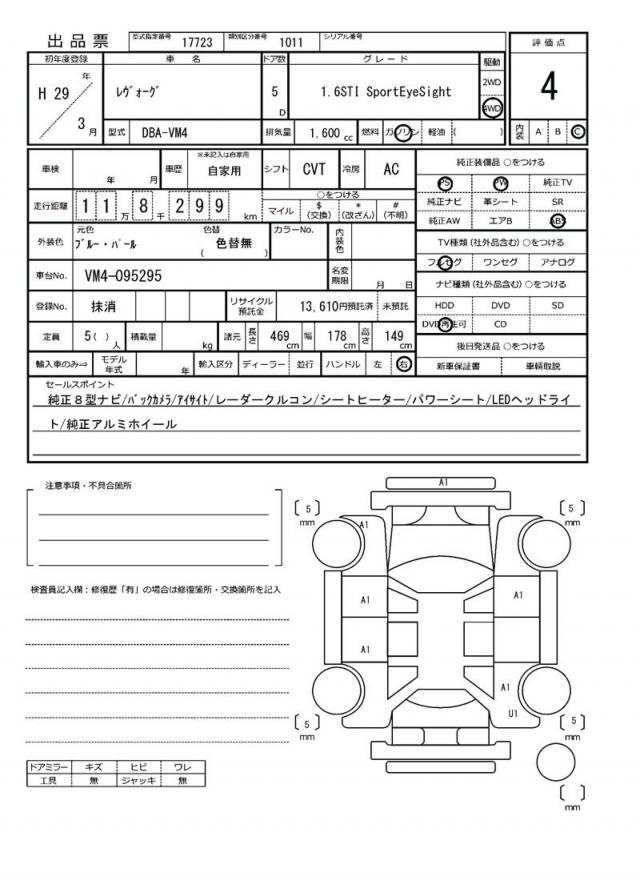 出品票 型式指定番号 17723 類別区分番号 1011 シリアル番号
初年度登録 車 名 ドア数 グレード 駆動 評価点
H 29 年 3 月 レヴォーグ 5 D 1.6STI SportEyeSight 2WD 4WD 4
型式 DBA-VM4 排気量 1.600 cc 燃料 ガソリン 軽油 ( ) 内装 A B C
車検 年 月 車歴 ※未記入は自家用 自家用 シフト CVT 冷房 AC 純正装備品 ○をつける
PS PW 純正TV
走行距離 11万8千299 km ○をつける マイル $(交換) *(改ざん) #(不明) 純正ナビ 革シート SR
純正AW エアB ABS
外装色 元色 ブルー・パール 色替 ( 色替無 ) カラーNo. 内装色 TV種類(社外品含む) ○をつける
フルセグ ワンセグ アナログ
車台No. VM4-095295 名変期限 月 日 ナビ種類(社外品含む) ○をつける
登録No. 抹消 リサイクル預託金 13,610円預託済 未預託 HDD DVD SD
DVD再生可 CD
定員 5( )人 積載量 kg 諸元 長さ 469 cm 幅 178 cm 高さ 149 cm 後日発送品 ○をつける
輸入車のみ⇒ モデル年式 年 輸入区分 ディーラー 並行 ハンドル 左 右 新車保証書 車輌取説
セールスポイント
純正8型ナビ/バックカメラ/アイサイト/レーダークルコン/シートヒーター/パワーシート/LEDヘッドライ
ト/純正アルミホイール
注意事項・不具合箇所
検査員記入欄：修復歴「有」の場合は修復箇所・交換箇所を記入
A1
5 mm
5 mm
A1
A1
A1
A1
A1
U1
5 mm
5 mm
mm
ドアミラー キズ ヒビ ワレ
工具 無 ジャッキ 無